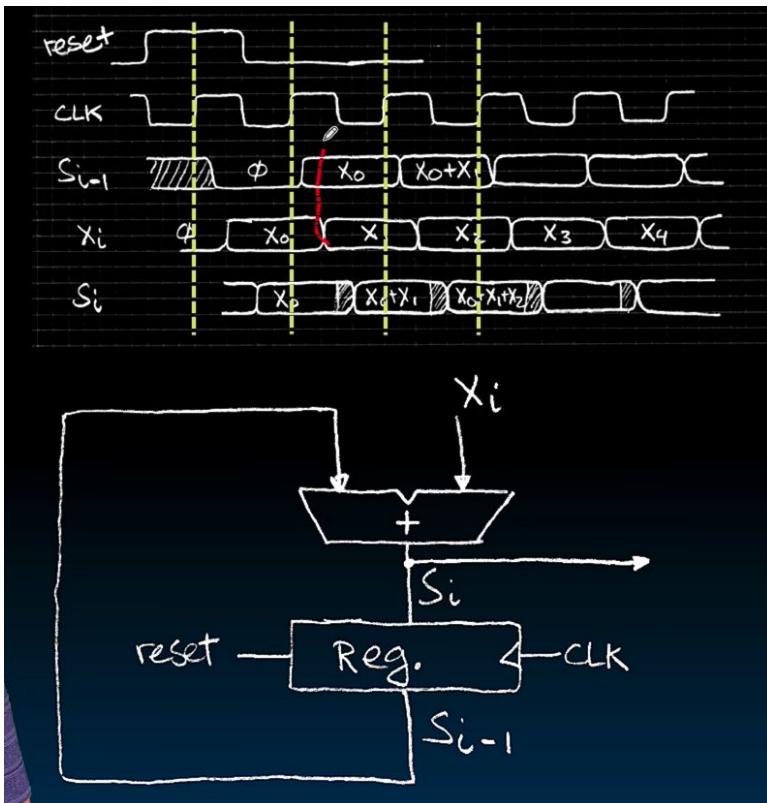 reset
CLK
Si-1 φ X0 X0+X1
Xi φ X0 X1 X2 X3 X4
Si X0 X0+X1 X0+X1+X2
Xi
+
Si
reset Reg. CLK
Si-1